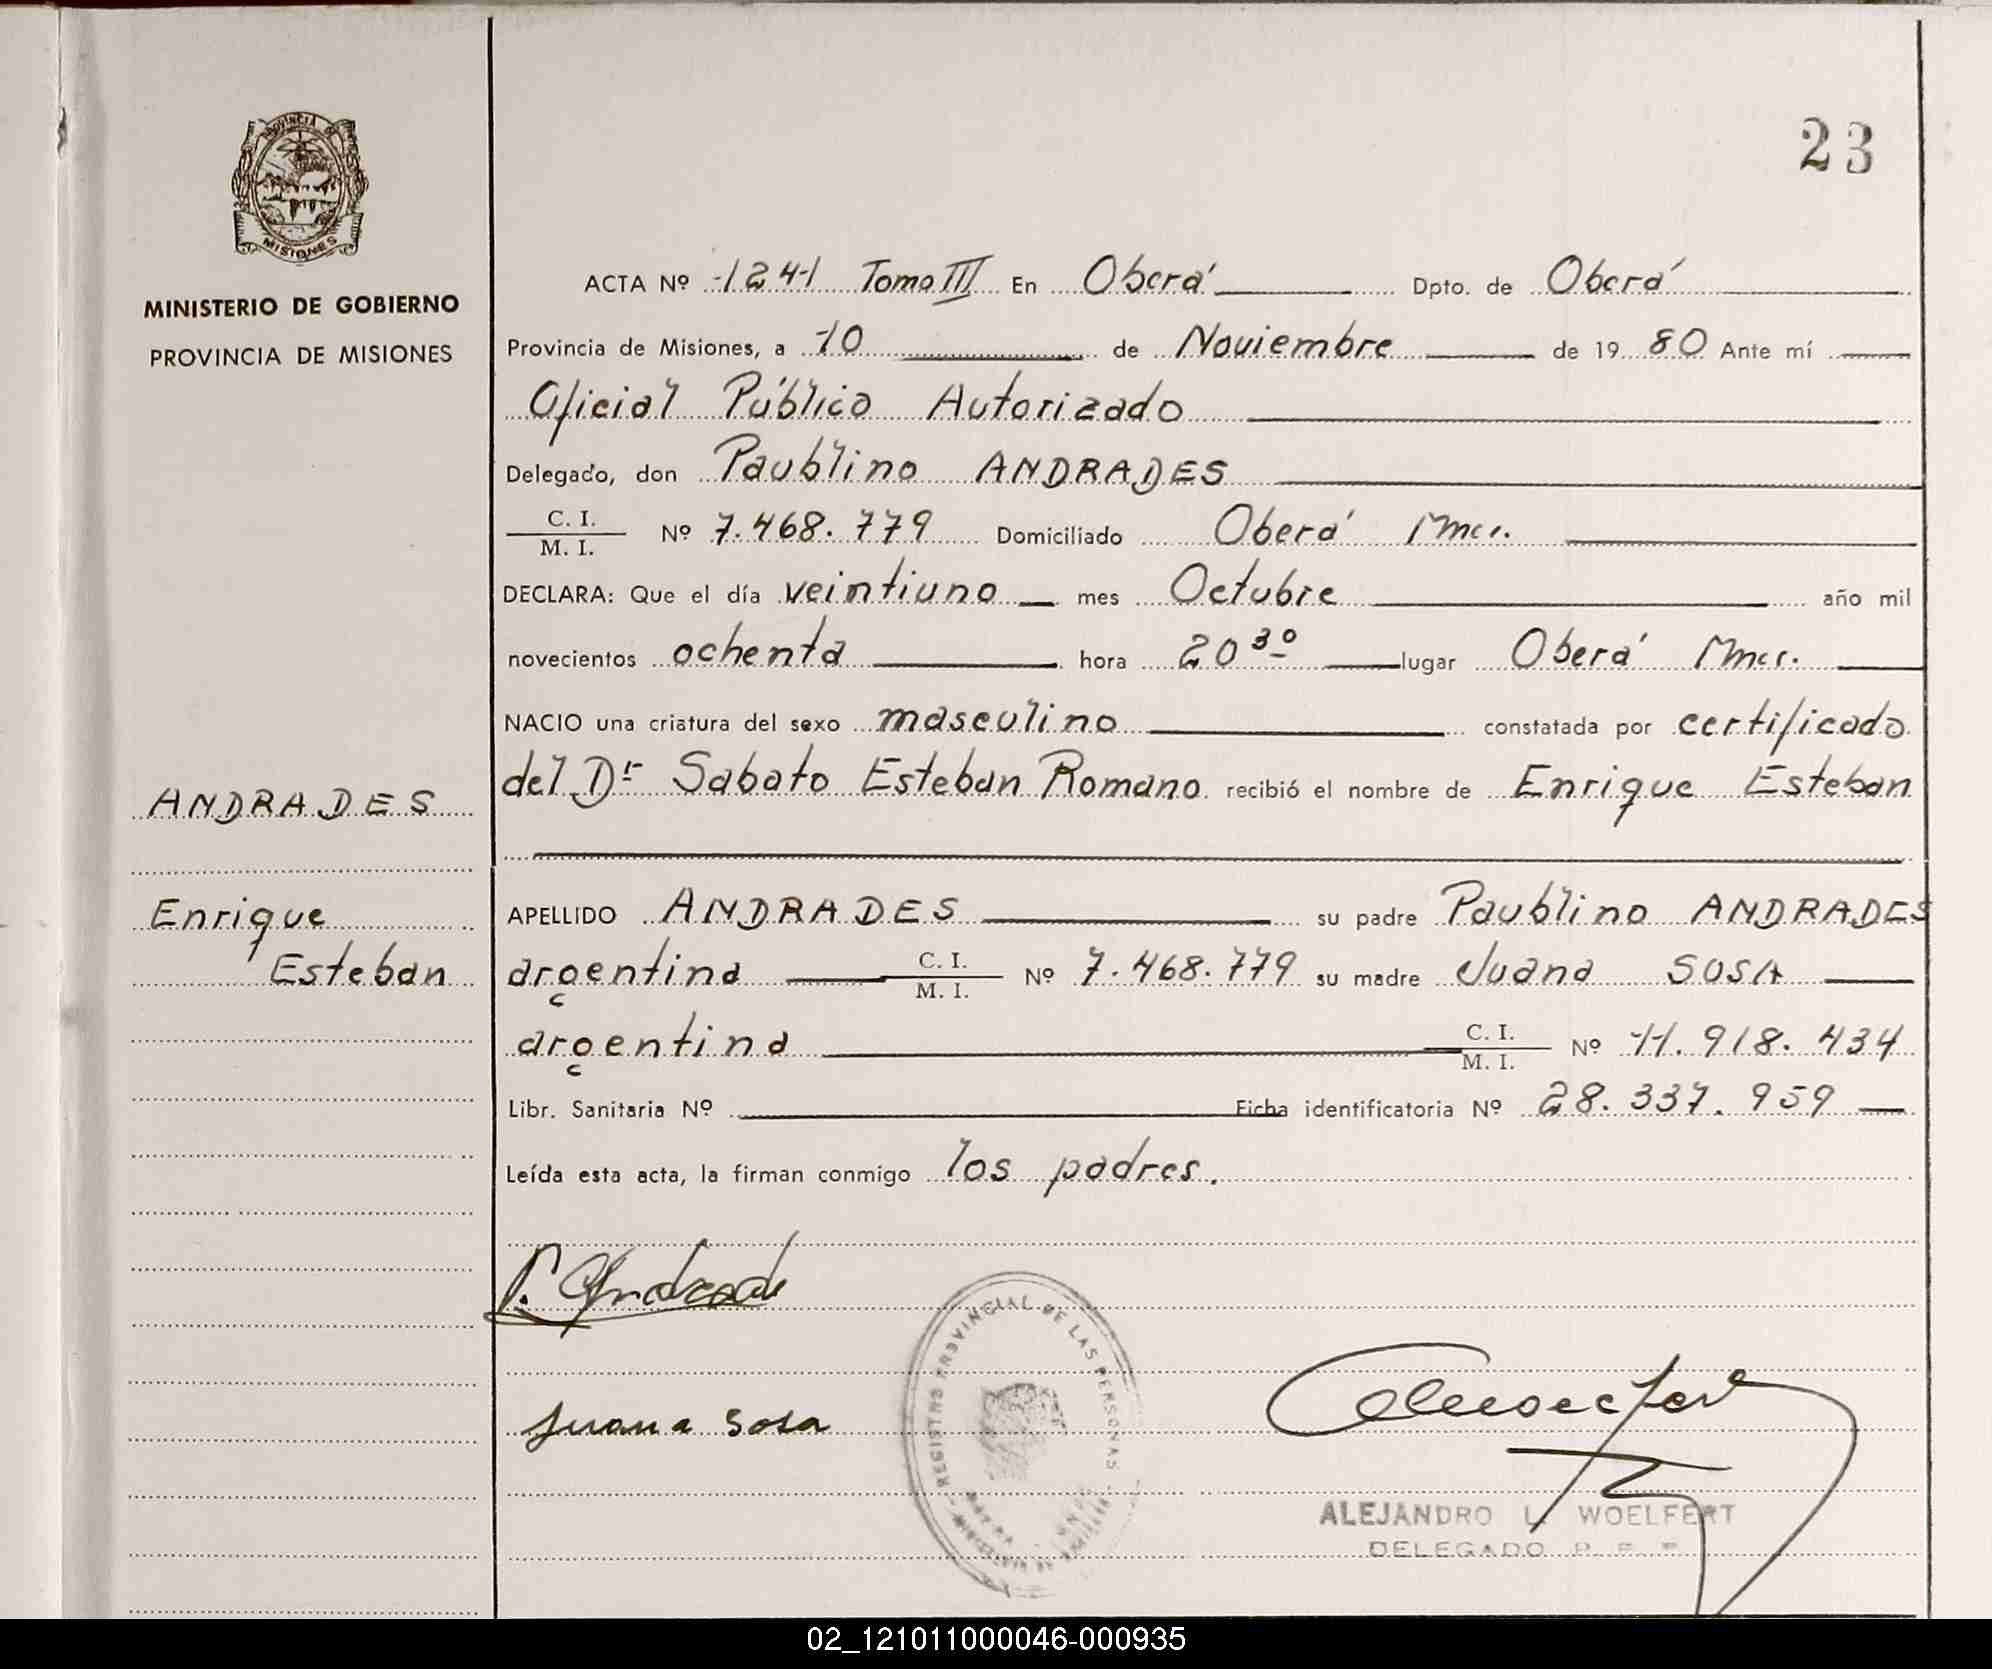 23
PROVINCIA DE
MISIONES
MINISTERIO DE GOBIERNO
PROVINCIA DE MISIONES
ACTA Nº 1241 Tomo III En Oberá Dpto. de Oberá
Provincia de Misiones, a 10 de Noviembre de 19 80 Ante mí
Oficial Público Autorizado
Delegado, don Paublino ANDRADES
C. I.
M. I. Nº 7.468.779 Domiciliado Oberá Mnes.
DECLARA: Que el día veintiuno mes Octubre año mil
novecientos ochenta hora 20 30 lugar Oberá Mnes.
NACIO una criatura del sexo masculino constatada por certificado
del Dr Sabato Esteban Romano recibió el nombre de Enrique Esteban
ANDRADES
Enrique
Esteban
APELLIDO ANDRADES su padre Paublino ANDRADES
argentina C. I.
M. I. Nº 7.468.779 su madre Juana SOSA
argentina C. I.
M. I. Nº 11.918.434
Libr. Sanitaria Nº Ficha identificatoria Nº 28.337.959
Leída esta acta, la firman conmigo los padres.
P. Andrade
Juana Sosa
REGISTRO PROVINCIAL DE LAS PERSONAS
ALEJANDRO L. WOELFERT
DELEGADO R. P. P.
02_121011000046-000935